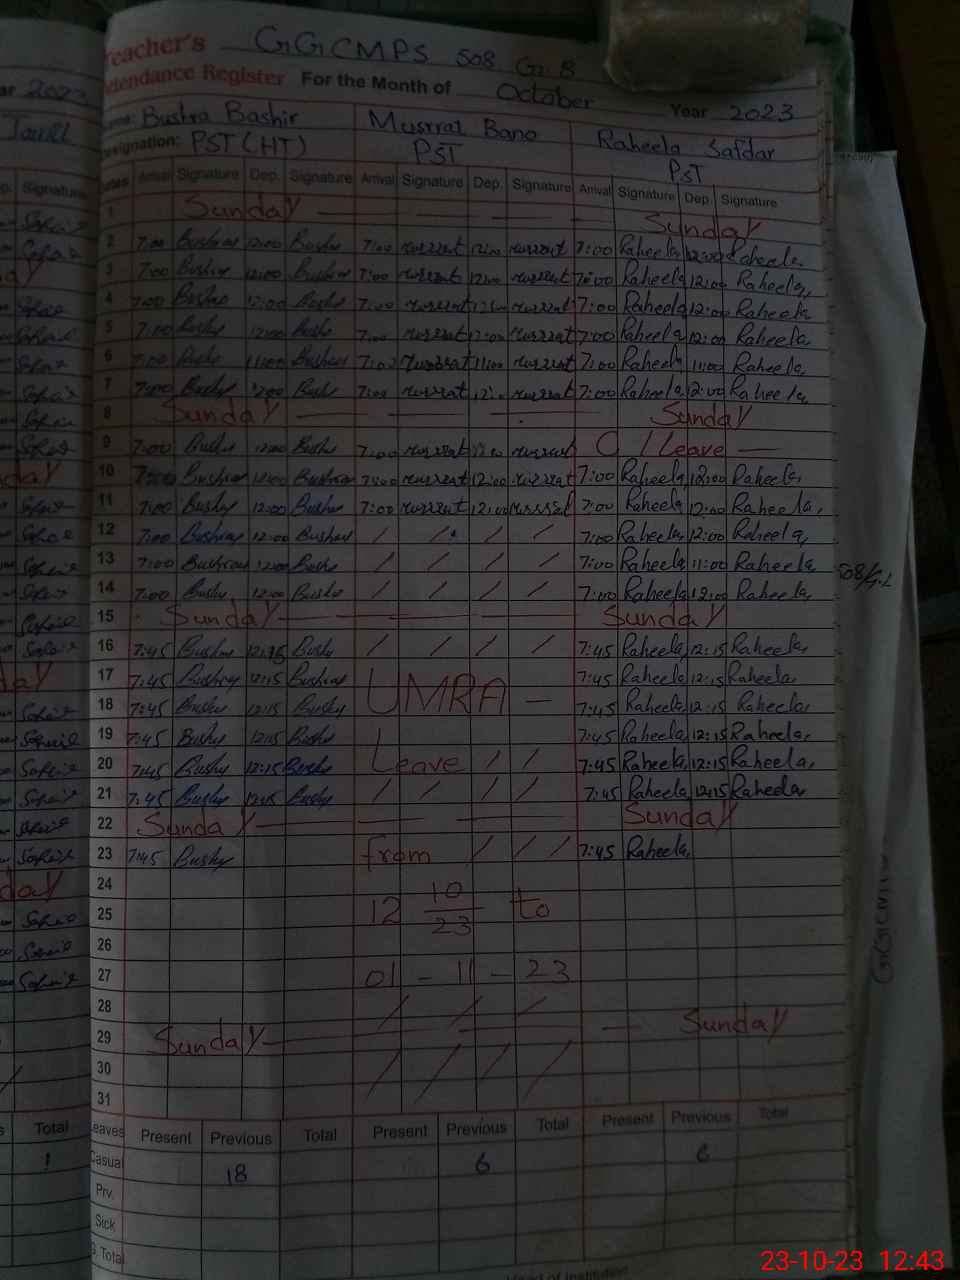 Teacher's GGCMPS 508 G.B
Attendance Register For the Month of October Year 2023
Name: Bushra Bashir Musrrat Bano Raheela Safdar
Designation: PST (HT) PST PST
Dates Arrival Signature Dep. Signature Arrival Signature Dep. Signature Arrival Signature Dep. Signature
1 Sunday Sunday
2 7:00 Bushra 12:00 Bushra 7:00 Musrrat 12:00 Musrrat 7:00 Raheela 12:00 Raheela
3 7:00 Bushra 12:00 Bushra 7:00 Musrrat 12:00 Musrrat 7:00 Raheela 12:00 Raheela
4 7:00 Bushra 12:00 Bushra 7:00 Musrrat 12:00 Musrrat 7:00 Raheela 12:00 Raheela
5 7:00 Bushra 12:00 Bushra 7:00 Musrrat 12:00 Musrrat 7:00 Raheela 12:00 Raheela
6 7:00 Bushra 11:00 Bushra 7:00 Musrrat 11:00 Musrrat 7:00 Raheela 11:00 Raheela
7 7:00 Bushra 12:00 Bushra 7:00 Musrrat 12:00 Musrrat 7:00 Raheela 12:00 Raheela
8 Sunday Sunday
9 7:00 Bushra 12:00 Bushra 7:00 Musrrat 12:00 Musrrat C/Leave
10 7:00 Bushra 12:00 Bushra 7:00 Musrrat 12:00 Musrrat 7:00 Raheela 12:00 Raheela
11 7:00 Bushra 12:00 Bushra 7:00 Musrrat 12:00 Musrrat 7:00 Raheela 12:00 Raheela
12 7:00 Bushra 12:00 Bushra / / / / 7:00 Raheela 12:00 Raheela
13 7:00 Bushra 12:00 Bushra / / / / 7:00 Raheela 11:00 Raheela
14 7:00 Bushra 12:00 Bushra / / / / 7:00 Raheela 12:00 Raheela
15 Sunday Sunday
16 7:45 Bushra 12:15 Bushra / / / / 7:45 Raheela 12:15 Raheela
17 7:45 Bushra 12:15 Bushra UMRA 7:45 Raheela 12:15 Raheela
18 7:45 Bushra 12:15 Bushra 7:45 Raheela 12:15 Raheela
19 7:45 Bushra 12:15 Bushra 7:45 Raheela 12:15 Raheela
20 7:45 Bushra 12:15 Bushra Leave / / 7:45 Raheela 12:15 Raheela
21 7:45 Bushra 12:15 Bushra / / / / 7:45 Raheela 12:15 Raheela
22 Sunday Sunday
23 7:45 Bushra from / / / 7:45 Raheela
24
25 12 10/23 to
26
27 01 - 11 - 23
28 / / /
29 Sunday Sunday
30 / / / /
31
Leaves Present Previous Total Present Previous Total Present Previous Total
Casual 18 6 6
Prv.
Sick
G. Total
Head of Institution
Total
1
Signature
508/G.B
23-10-23 12:43